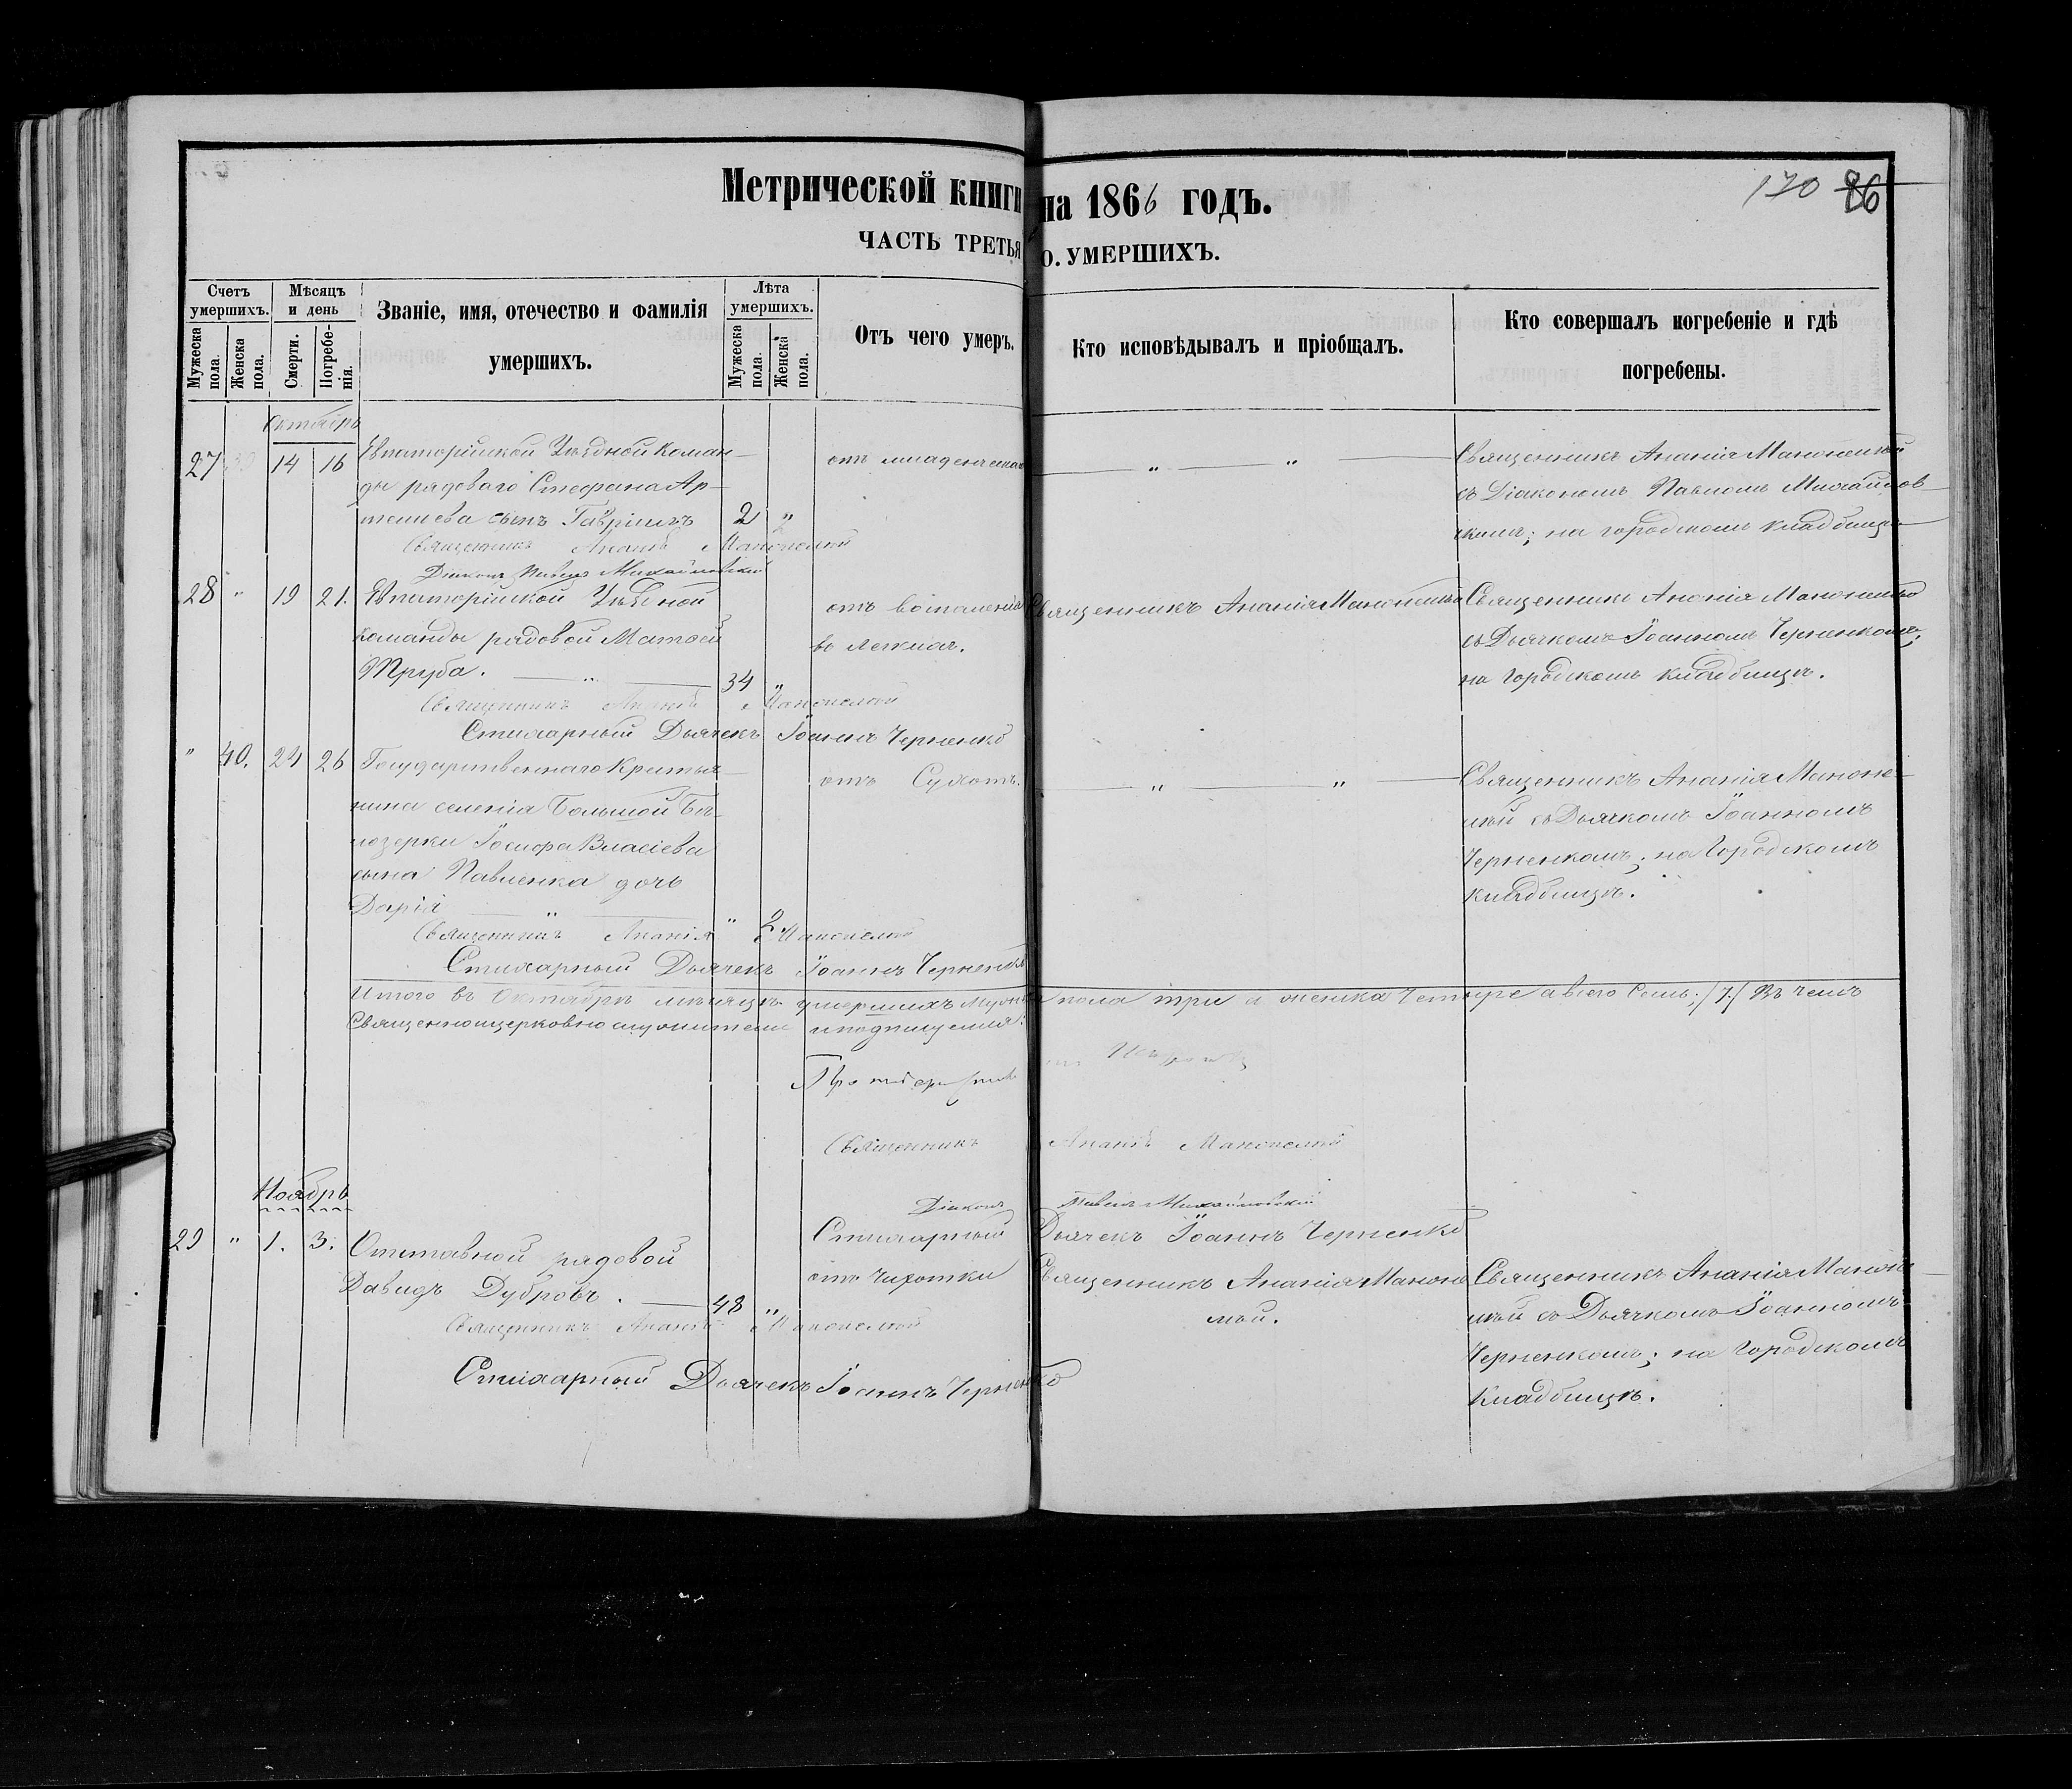 Метрической книги на 1866 годъ.
170 86
ЧАСТЬ ТРЕТЬЯ О. УМЕРШИХЪ.
Счетъ умершихъ.
Мужеска пола.
Женска пола.
Мѣсяцъ и день
Смерти.
Погребенія.
Званіе, имя, отечество и фамилія
умершихъ.
Лѣта умершихъ.
Мужеска пола.
Женска пола.
Отъ чего умеръ.
Кто исповѣдывалъ и пріобщалъ.
Кто совершалъ погребеніе и гдѣ
погребены.
Октябрь
27 14 16 Евпаторійской Уѣздной Коман-
ды рядоваго Стефана Ар-
темиева сынъ Гавріилъ 2 "
от младенческой
" "
Священникъ Ананія
съ Діакономъ Павломъ Михайлов-
скимъ; на городскомъ кладбищѣ
Священникъ Ананій
Діаконъ Павелъ Михайловскій
28 " 19 21. Евпаторійской Уѣздной
команды рядовой Матѳей
Труба. " 34 "
отъ воспаленія
въ легкихъ.
Священникъ Ананія
Священникъ Ананія
съ Дьячкомъ Іоанномъ Черненкомъ;
на городскомъ кладбищѣ.
Священникъ Ананій
Стихарный Дьячекъ Іоаннъ Черненко
" 40. 24 26 Государственнаго Крестья-
нина селенія Большой Бѣ-
лозерки Іосифа Власіева
сына Павленка дочь
Дарія " " 2
отъ Сухотъ.
" "
Священникъ Ананія
съ Дьячкомъ Іоанномъ
Черненкомъ; на Городскомъ
кладбищѣ.
Священникъ Ананія
Стихарный Дьячекъ Іоаннъ Черненко
Итого въ Октябрѣ мѣсяцѣ умершихъ мужеска пола три а женска Четыре а всего Семь; /7./ Въ чемъ
Священноцерковнослужители и подпишемся:
Священникъ Ананій
Діаконъ Павелъ Михайловскій
Стихарный Дьячекъ Іоаннъ Черненко
Ноябрь
29 " 1. 3. Отставной рядовой
Давидъ Дубровъ. 48 "
отъ Чахотки
Священникъ Ананія
Священникъ Ананія
съ Дьячкомъ Іоанномъ
Черненкомъ; на Городскомъ
Кладбищѣ.
Священникъ Ананій
Стихарный Дьячекъ Іоаннъ Черненко